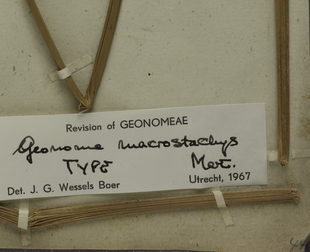 Revision of GEONOMEAE
Geonoma macrostachys
TYPE Mart.
Det. J. G. Wessels Boer Utrecht, 1967